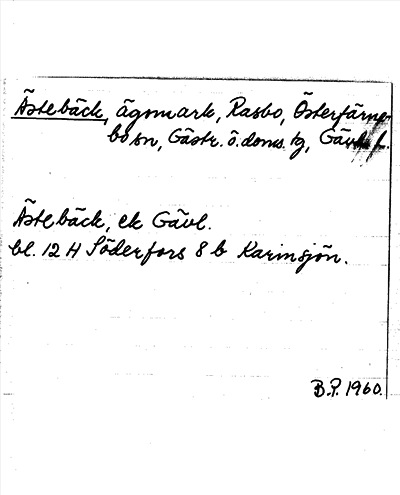 Ästebäck, ägomark, Rasbo, Österfärne-
bo sn, Gästr. ö. doms. tg, Gävl. l.
Ästebäck, ek Gävl.
bl. 12 H Söderfors 8 b Karinsjön.
B.P. 1960.